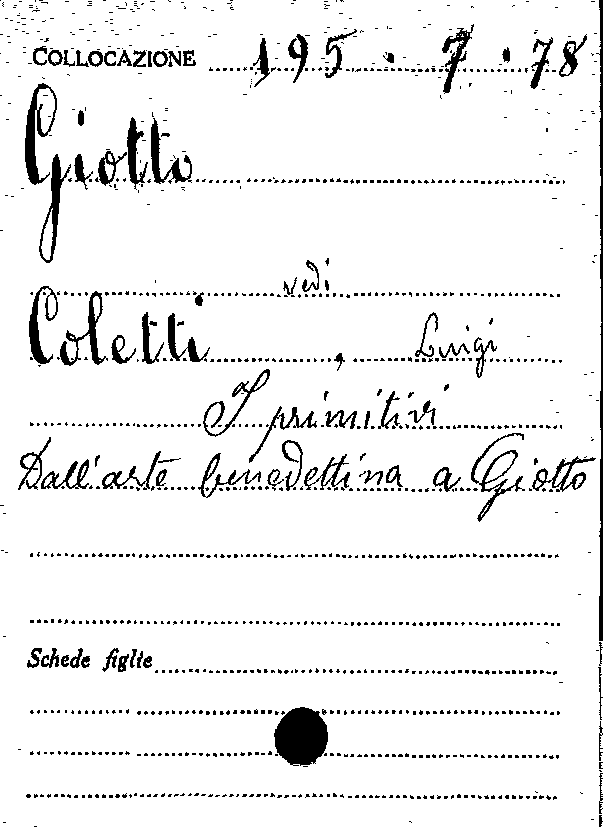 COLLOCAZIONE 195.7.78
Giotto
vedi
Coletti, Luigi
I primitivi
Dall'arte benedettina a Giotto
Schede figlie